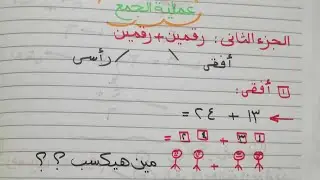 عملية الجمع
الجزء الثانى : رقمين + رقمين
أفقى رأسى
١ أفقى :
١٣ + ٢٤ =
١ ٣ + ٢ ٤ =
مين هيكسب ؟ ؟